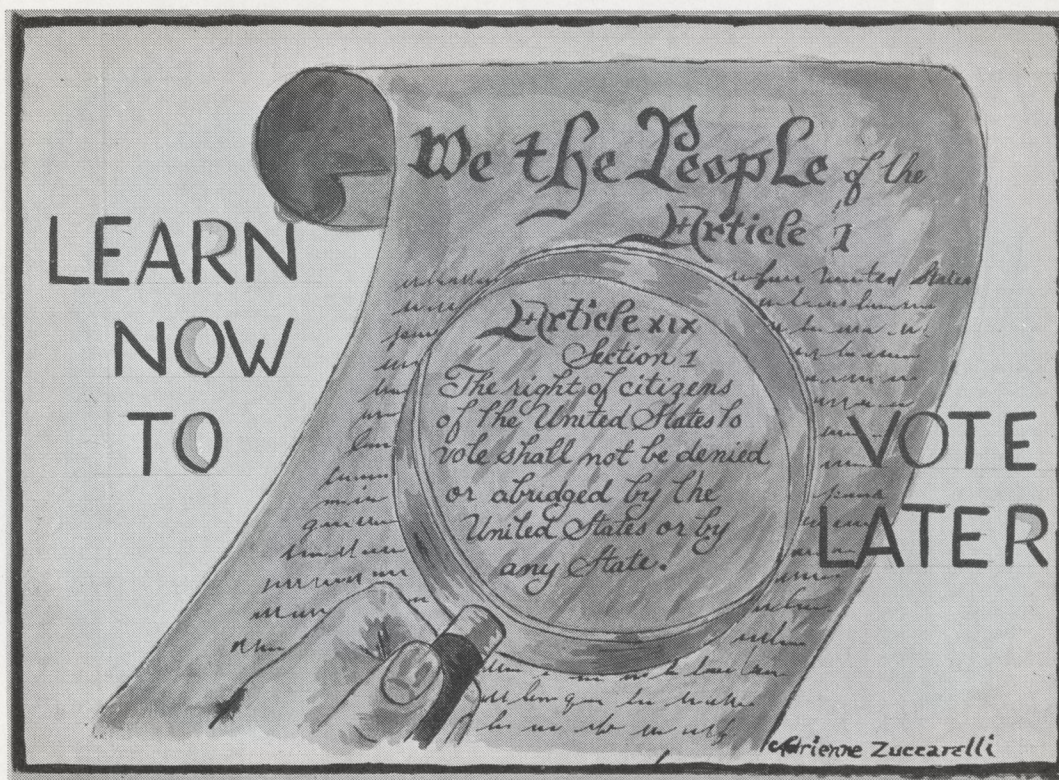 We the People of the
Article 1
LEARN
NOW
TO
United States
Article XIX
Section 1
The right of citizens
of the United States to
vote shall not be denied
or abridged by the
United States or by
any State.
VOTE
LATER
Adrienne Zuccarelli